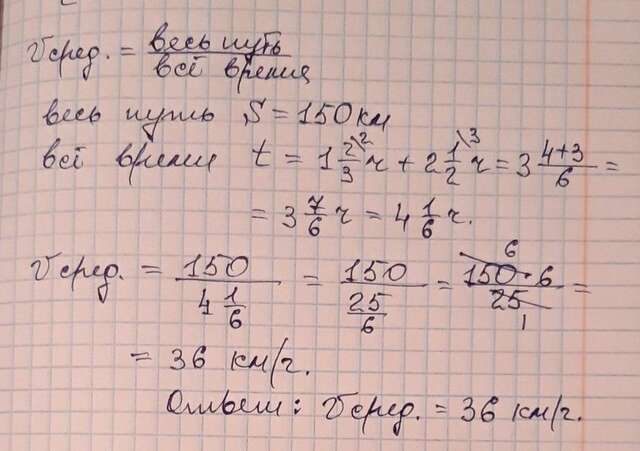 Vсред. = весь путь / всё время
весь путь S = 150 км
всё время t = 1 2/3 \2 ч + 2 1/2 \3 ч = 3 (4+3)/6 =
= 3 7/6 ч = 4 1/6 ч.
Vсред. = 150 / (4 1/6) = 150 / (25/6) = (150 · 6) / 25 = 6 1
= 36 км/ч.
Ответ: Vсред. = 36 км/ч.